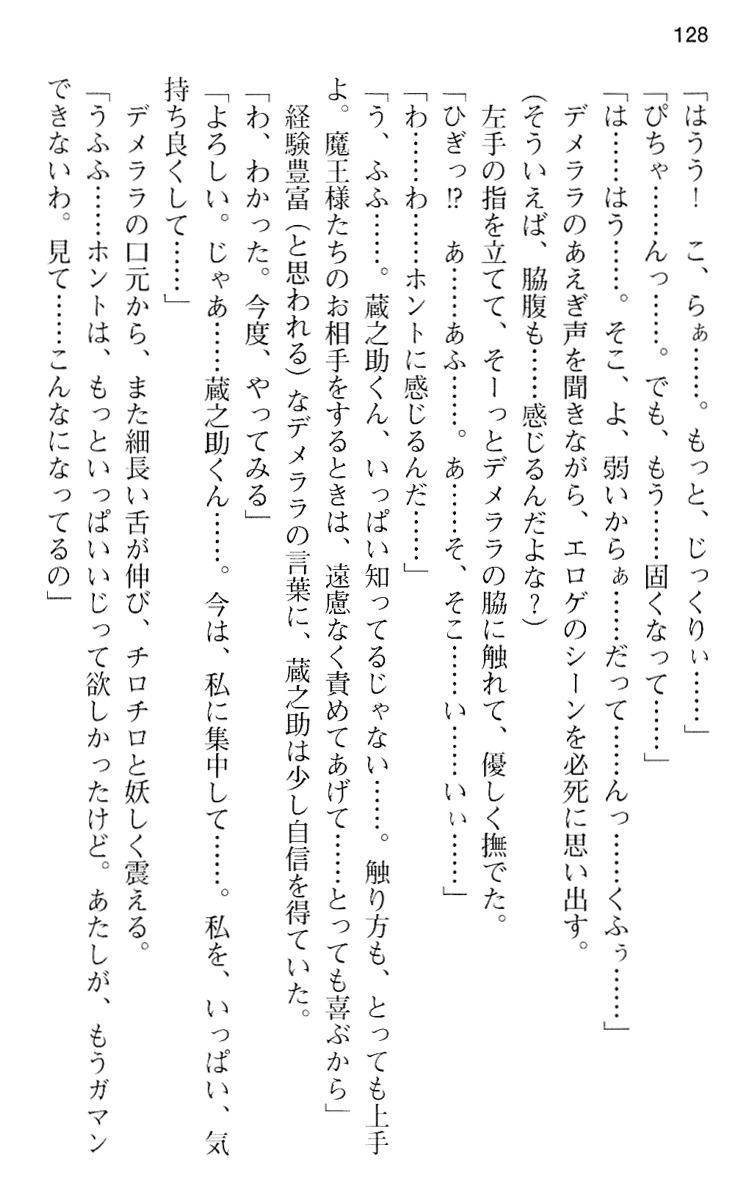 128
「はうう！　こ、らぁ……。もっと、じっくりぃ……」
「ぴちゃ……んっ……。でも、もう……固くなって……」
「は……はう……。そこ、よ、弱いからぁ……だって……んっ……くふぅ……」
　デメララのあえぎ声を聞きながら、エロゲのシーンを必死に思い出す。
（そういえば、脇腹も……感じるんだよな？）
　左手の指を立てて、そーっとデメララの脇に触れて、優しく撫でた。
「ひぎっ!?　あ……あふ……。あ……そ、そこ……い……いぃ……」
「わ……わ……ホントに感じるんだ……」
「う、ふふ……。蔵之助くん、いっぱい知ってるじゃない……。触り方も、とっても上手
よ。魔王様たちのお相手をするときは、遠慮なく責めてあげて……とっても喜ぶから」
　経験豊富（と思われる）なデメララの言葉に、蔵之助は少し自信を得ていた。
「わ、わかった。今度、やってみる」
「よろしい。じゃあ……蔵之助くん……。今は、私に集中して……。私を、いっぱい、気
持ち良くして……」
　デメララの口元から、また細長い舌が伸び、チロチロと妖しく震える。
「うふふ……ホントは、もっといっぱいいじって欲しかったけど。あたしが、もうガマン
できないわ。見て……こんなになってるの」